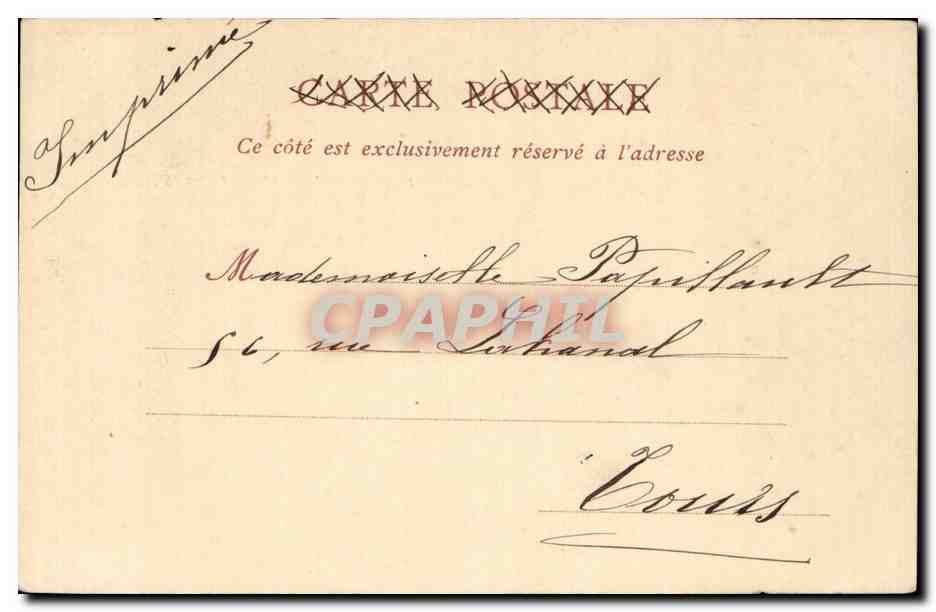 Imprimé
CARTE POSTALE
Ce côté est exclusivement réservé à l'adresse
Mademoiselle Papillault
CPAPHIL
56, rue Lakanal
Tours